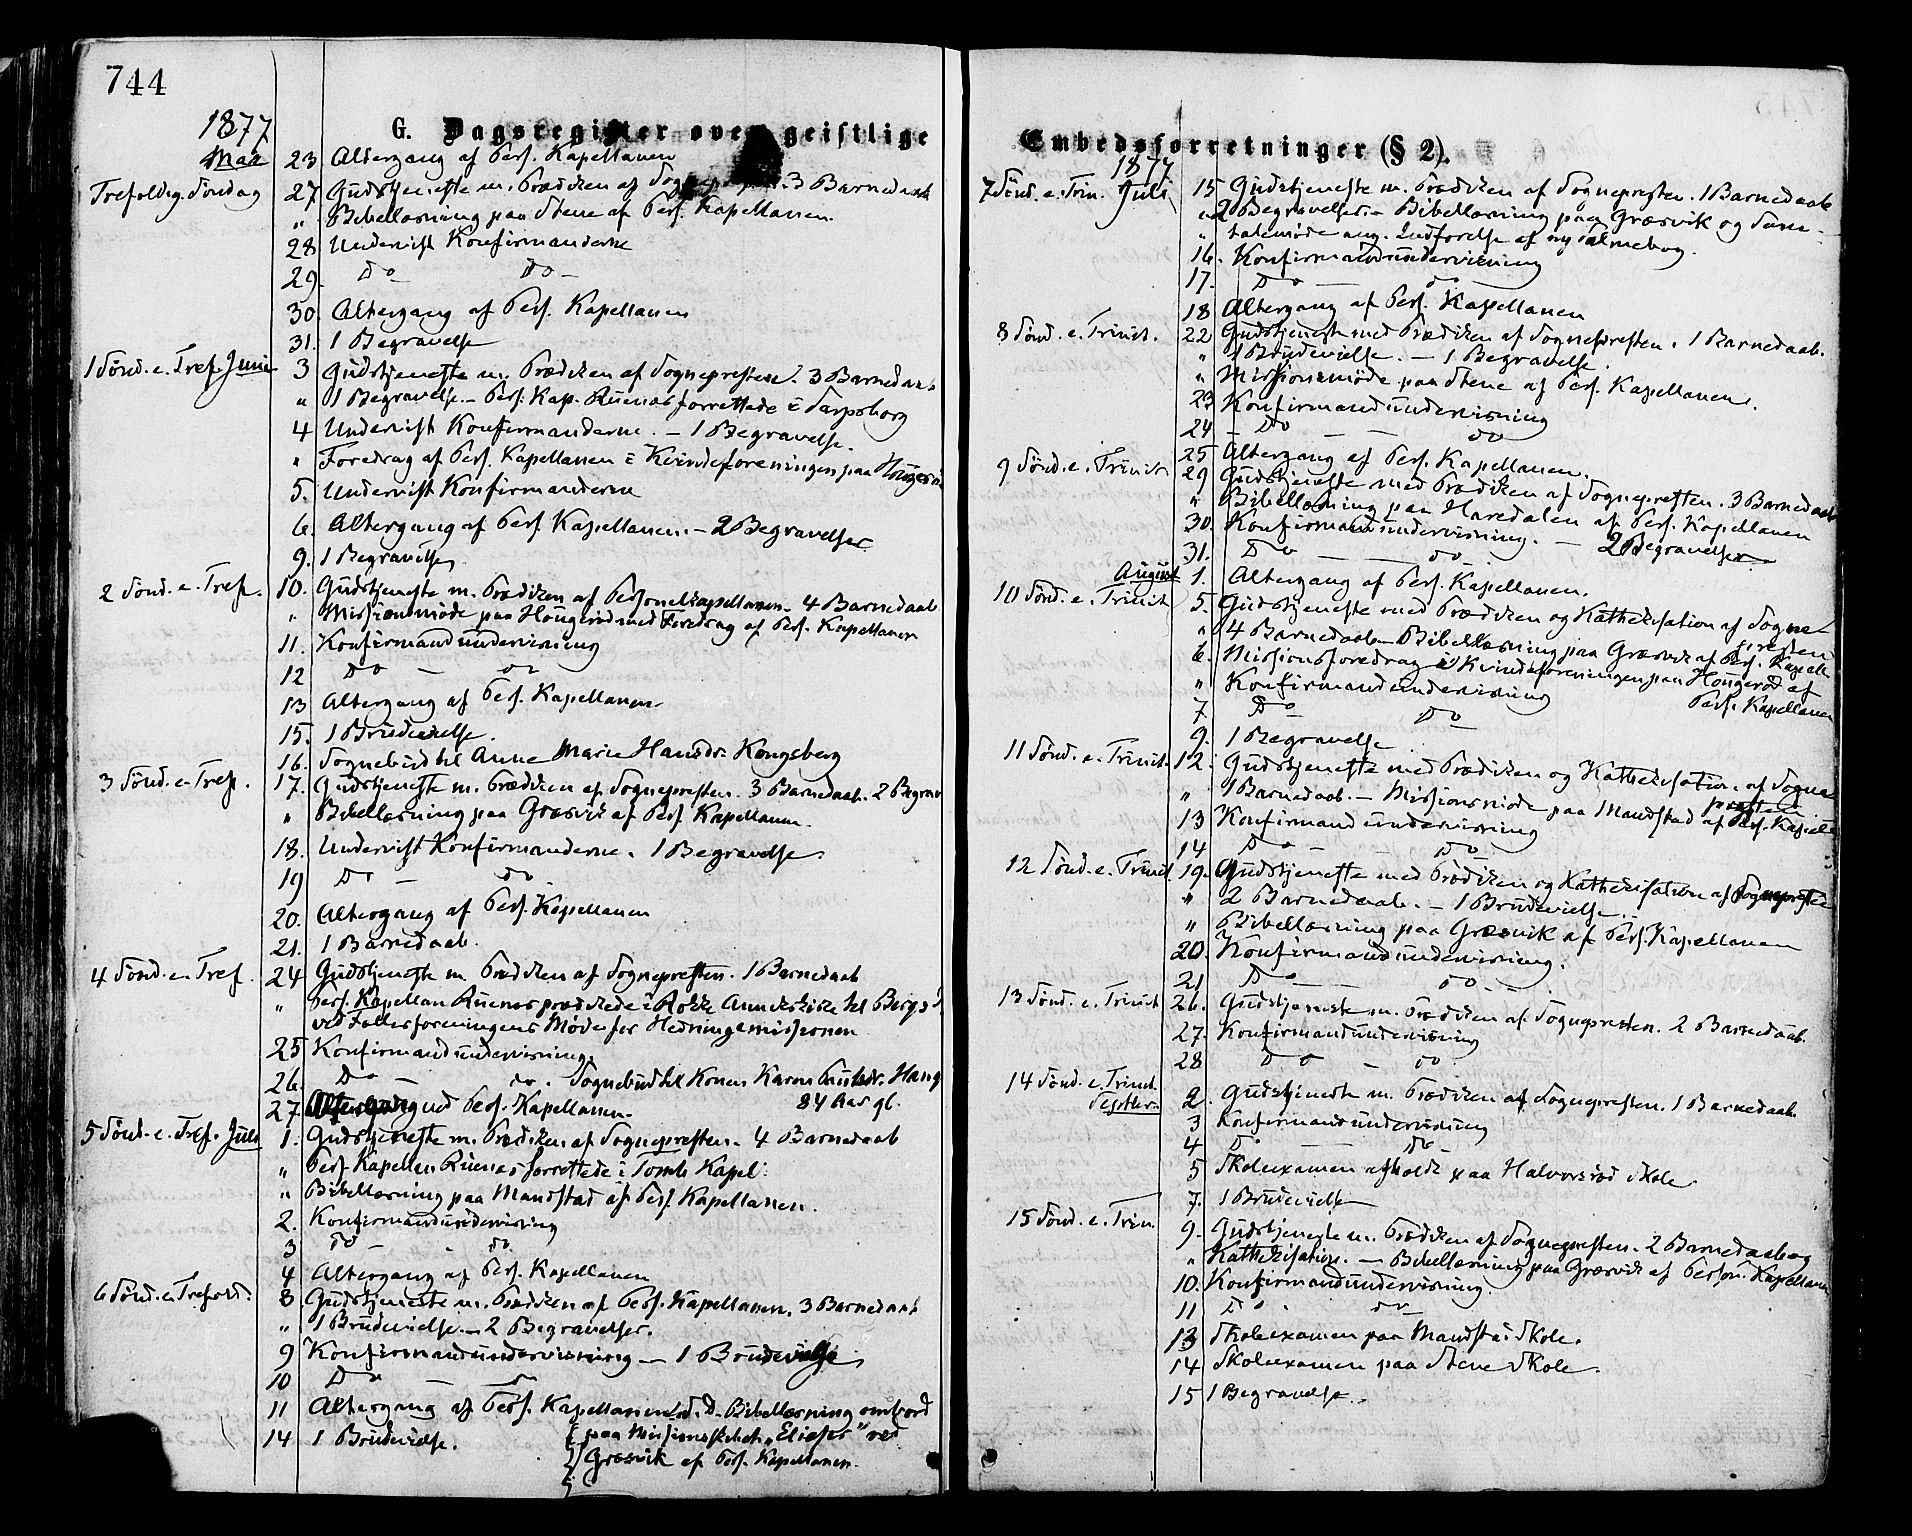 744
G. Dagsregister over geistlige
1877
Mai 23 Altergang af Pers. Kapellanen
Trefoldig. Søndag 27 Gudstjeneste m. Prædiken af 3 Barnedaab
" Bibellæsning paa Stene af Pers. Kapellanen.
28 Undervist Konfirmanderne
29. Do Do
30. Altergang af Pers. Kapellanen
31. 1 Begravelse
1 Sønd. e. Tref. Juni 3 Gudstjeneste m. Prædiken af Sognepresten. 3 Barnedaab
" 1 Begravelse. – Pers. Kap. Ruenæs forrettede i Sarpsborg
4 Undervist Konfirmanderne. – 1 Begravelse.
" Foredrag af Pers. Kapellanen i Kvindeforeningen paa
5. Undervist Konfirmanderne
6. Altergang af Pers. Kapellanen. – 2 Begravelser
9. 1 Begravelse
2 Sønd. e. Tref. 10. Gudstjeneste m. Prædiken af Personelkapellanen. 4 Barnedaab
" Missionsmøde paa Hougerød med Foredrag af Pers. Kapellanen
11. Konfirmandundervisning
12 Do – do
13 Altergang af Pers. Kapellanen
15. 1 Brudevielse.
16. Sognebud til Anne Marie Hansdr. Kongsberg
3 Sønd. e. Tref. 17. Gudstjeneste m. Prædiken af Sognepresten. 3 Barnedaab. 2 Begrav
" Bibellæsning paa Græsvik af Pers. Kapellanen.
18. Undervist Konfirmanderne. 1 Begravelse.
19 Do – do
20. Altergang af Pers. Kapellanen
21. 1 Barnedaab.
4 Sønd. e. Tref. 24 Gudstjeneste m. Prædiken af Sognepresten. 1 Barnedaab
" Pers. Kapellan Ruenæs prædikede i Rokke Annexkirke til Berg
ved Fællesforeningens Møde for Hedningemissionen
25 Konfirmandundervisning.
26. Do – do. Sognebud til Konen Karen
84 Aar gl.
27. Altergang ved Pers. Kapellanen.
5 Sønd. e. Tref. Juli 1. Gudstjeneste m. Prædiken af Sognepresten. 4 Barnedaab
" Pers. Kapellan Ruenæs forrettede i Tomb Kapel.
" Bibellæsning paa Mandstad af Pers. Kapellanen.
2. Konfirmandundervisning
3 Do – do
4 Altergang af Pers. Kapellanen
6 Sønd. e. Trefold. 8 Gudstjeneste m. Prædiken af Pers. Kapellanen. 3 Barnedaab
" 1 Brudevielse. – 2 Begravelser.
9 Konfirmandundervisning – 1 Brudevielse
10 Do – do
11 Altergang af Pers. Kapellanen – Bibellæsning ombord
paa Missionsskibet „Elieser" ved
Græsvik af Pers. Kapellanen.
14 1 Brudevielse.
Embedsforretninger (§ 2).
1877
7 Sønd. e. Trin. Juli 15 Gudstjeneste m. Prædiken af Sognepresten. 1 Barnedaab
" 2 Begravelser. – Bibellæsning paa Græsvik og Sam-
" talemøde ang. Indførelse af ny Salmebog.
16. Konfirmandundervisning
17. Do – do –
18 Altergang af Pers. Kapellanen
8 Sønd. e. Trinit. 22 Gudstjeneste med Prædiken af Sognepresten. 1 Barnedaab.
" 1 Brudevielse. – 1 Begravelse.
" Missionsmøde paa Stene af Pers. Kapellanen.
23 Konfirmandundervisning
24 – Do – – do
25 Altergang af Pers. Kapellanen.
9 Sønd. e. Trinit 29 Gudstjeneste med Prædiken af Sognepresten. 3 Barnedaab
" Bibellæsning paa Haredalen af Pers. Kapellanen
30. Konfirmandundervisning. – 2 Begravelser
31. Do – do
August 1. Altergang af Pers. Kapellanen.
10 Sønd. e. Trinit 5. Gudstjeneste med Prædiken og Kathekisation af Sogne-
presten
" 4 Barnedaab – Bibellæsning paa Græsvik af Pers. Kapell
6. Missionsforedrag i Kvindeforeningen paa Hougerød af
Pers. Kapellanen
" Konfirmandundervisning
7 Do – Do
9. 1 Begravelse
11 Sønd. e. Trinit. 12. Gudstjeneste med Prædiken og Kathekisation af Sogne
presten
" 1 Barnedaab. – Missionsmøde paa Mandstad af Pers. Kapell
13 Konfirmandundervisning
14 Do – – do
12 Sønd. e. Trinit. 19. Gudstjeneste med Prædiken og Kathekisation af Sognepresten
" 2 Barnedaab. – 1 Brudevielse.
" Bibellæsning paa Græsvik af Pers. Kapellanen
20. Konfirmandundervisning.
21 Do – do –
13 Sønd. e. Trinit 26. Gudstjeneste m. Prædiken af Sognepresten. 2 Barnedaab.
27. Konfirmandundervisning
28 Do – do
14 Sønd. e. Trinit.
Septbr. 2. Gudstjeneste m. Prædiken af Sognepresten. 1 Barnedaab.
3 Konfirmandundervisning
4 Do – – do
5 Skoleexamen afholdt paa Halvorsrød Skole
7. 1 Brudevielse
15 Sønd. e. Trin. 9. Gudstjeneste m. Prædiken af Sognepresten. 2 Barnedaab og
" Kathekisation. – Bibellæsning paa Græsvik af Person. Kapellanen
10. Konfirmandundervisning.
11 Do. do
13 Skoleexamen paa Mandstad Skole.
14 Skoleexamen paa Stene Skole.
15 1 Begravelse.